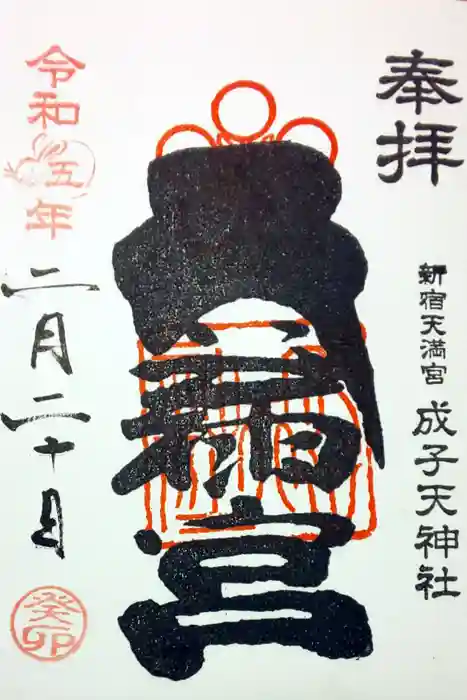 奉拝
新宿天満宮 成子天神社
宮
令和五年
二月二十日
癸卯